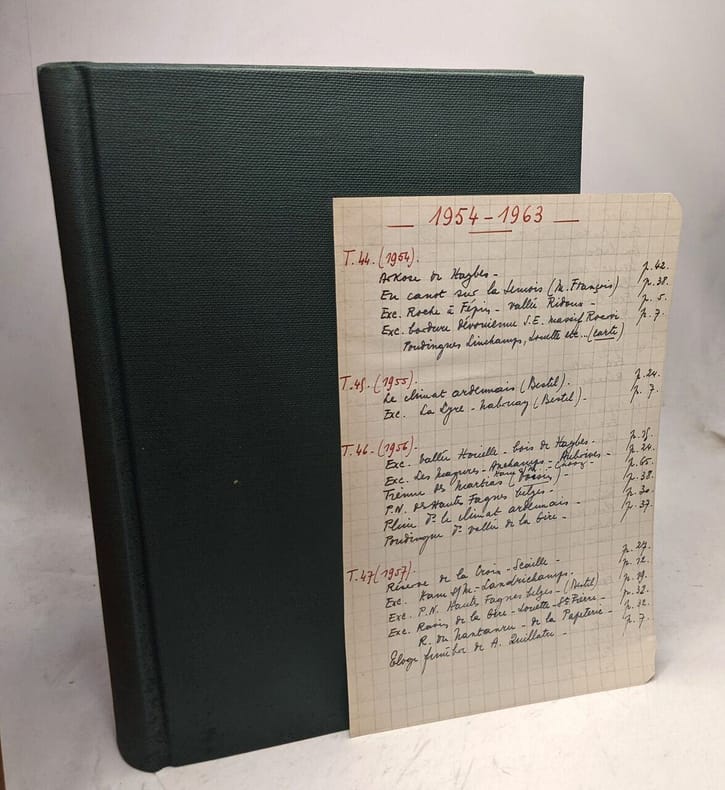 — 1954 – 1963 —
T.44. (1954).
Arkose de Haybes – p. 42.
En canot sur la Semois (M. François) p. 38.
Exc. Roche à Fépin – vallée Ridoux – p. 5.
Exc. bordure dévonienne S.E. massif Rocroi p. 7.
Poudingues Linchamps, Louette etc... (carte)
T.45. (1955).
Le climat ardennais (Bestel). p. 24.
Exc. La Lyre – Nabouay (Bestel). – p. 7.
T.46 – (1956).
Exc. vallée Horielle – bois de Haybes –
Exc. Les Mazures – Anchamps – p. 24.
Trésune des p. 65.
P.N. des Hautes Fagnes belges – p. 38.
Pluie ds le climat ardennais – p. 30.
Poudingue ds vallée de la Gire – p. 37.
T.47 (1957).
Réserve de la Croix-Scaille –
Exc. Ham s/M – Landrichamps. p. 12.
Exc. P.N. Hautes Fagnes belges – (Bestel)
Exc. Ravin de la Gire – Louette St Pierre – p. 32.
R. de Nantanru – de la Papeterie – p. 32.
Eloge funèbre de A. Quillatre – p. 7.